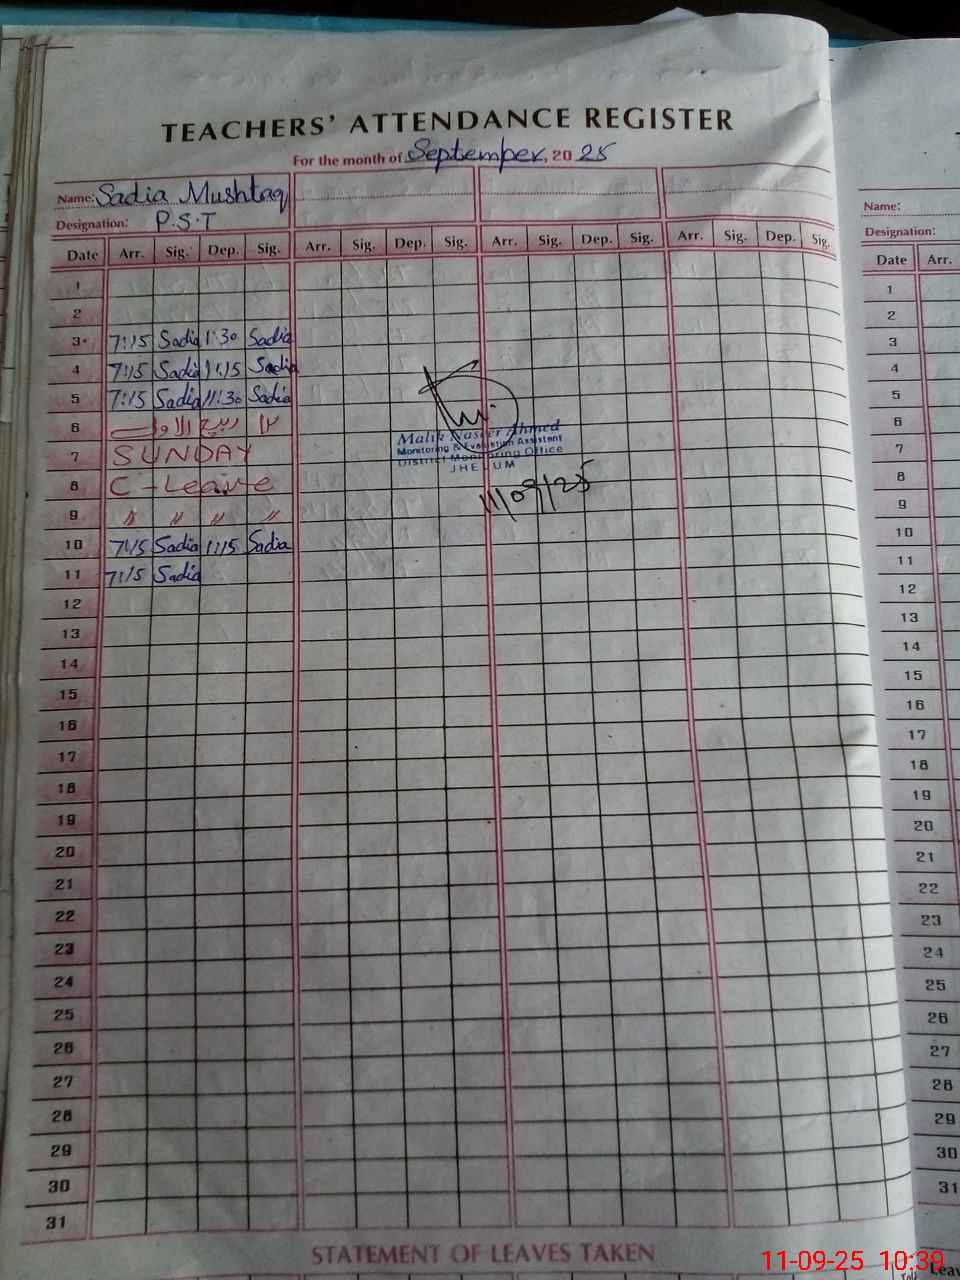 TEACHERS' ATTENDANCE REGISTER
For the month of September, 20 25
Name: Sadia Mushtaq
Designation: P.S.T
Date Arr. Sig. Dep. Sig. Arr. Sig. Dep. Sig. Arr. Sig. Dep. Sig. Arr. Sig. Dep. Sig.
1
2
3 7:15 Sadia 1:30 Sadia
4 7:15 Sadia 1:15 Sadia
5 7:15 Sadia 11:30 Sadia
6 ١٢ ربیع الاول
7 SUNDAY
8 C-Leave
9 " " " "
10 7:15 Sadia 1:15 Sadia
11 7:15 Sadia
12
13
14
15
16
17
18
19
20
21
22
23
24
25
26
27
28
29
30
31
Malik Naseer Ahmed
Monitoring & Evaluation Assistant
District Monitoring Office
JHELUM
11/09/25
STATEMENT OF LEAVES TAKEN
Name:
Designation:
Date Arr.
1
2
3
4
5
6
7
8
9
10
11
12
13
14
15
16
17
18
19
20
21
22
23
24
25
26
27
28
29
30
31
Leav
11-09-25 10:39